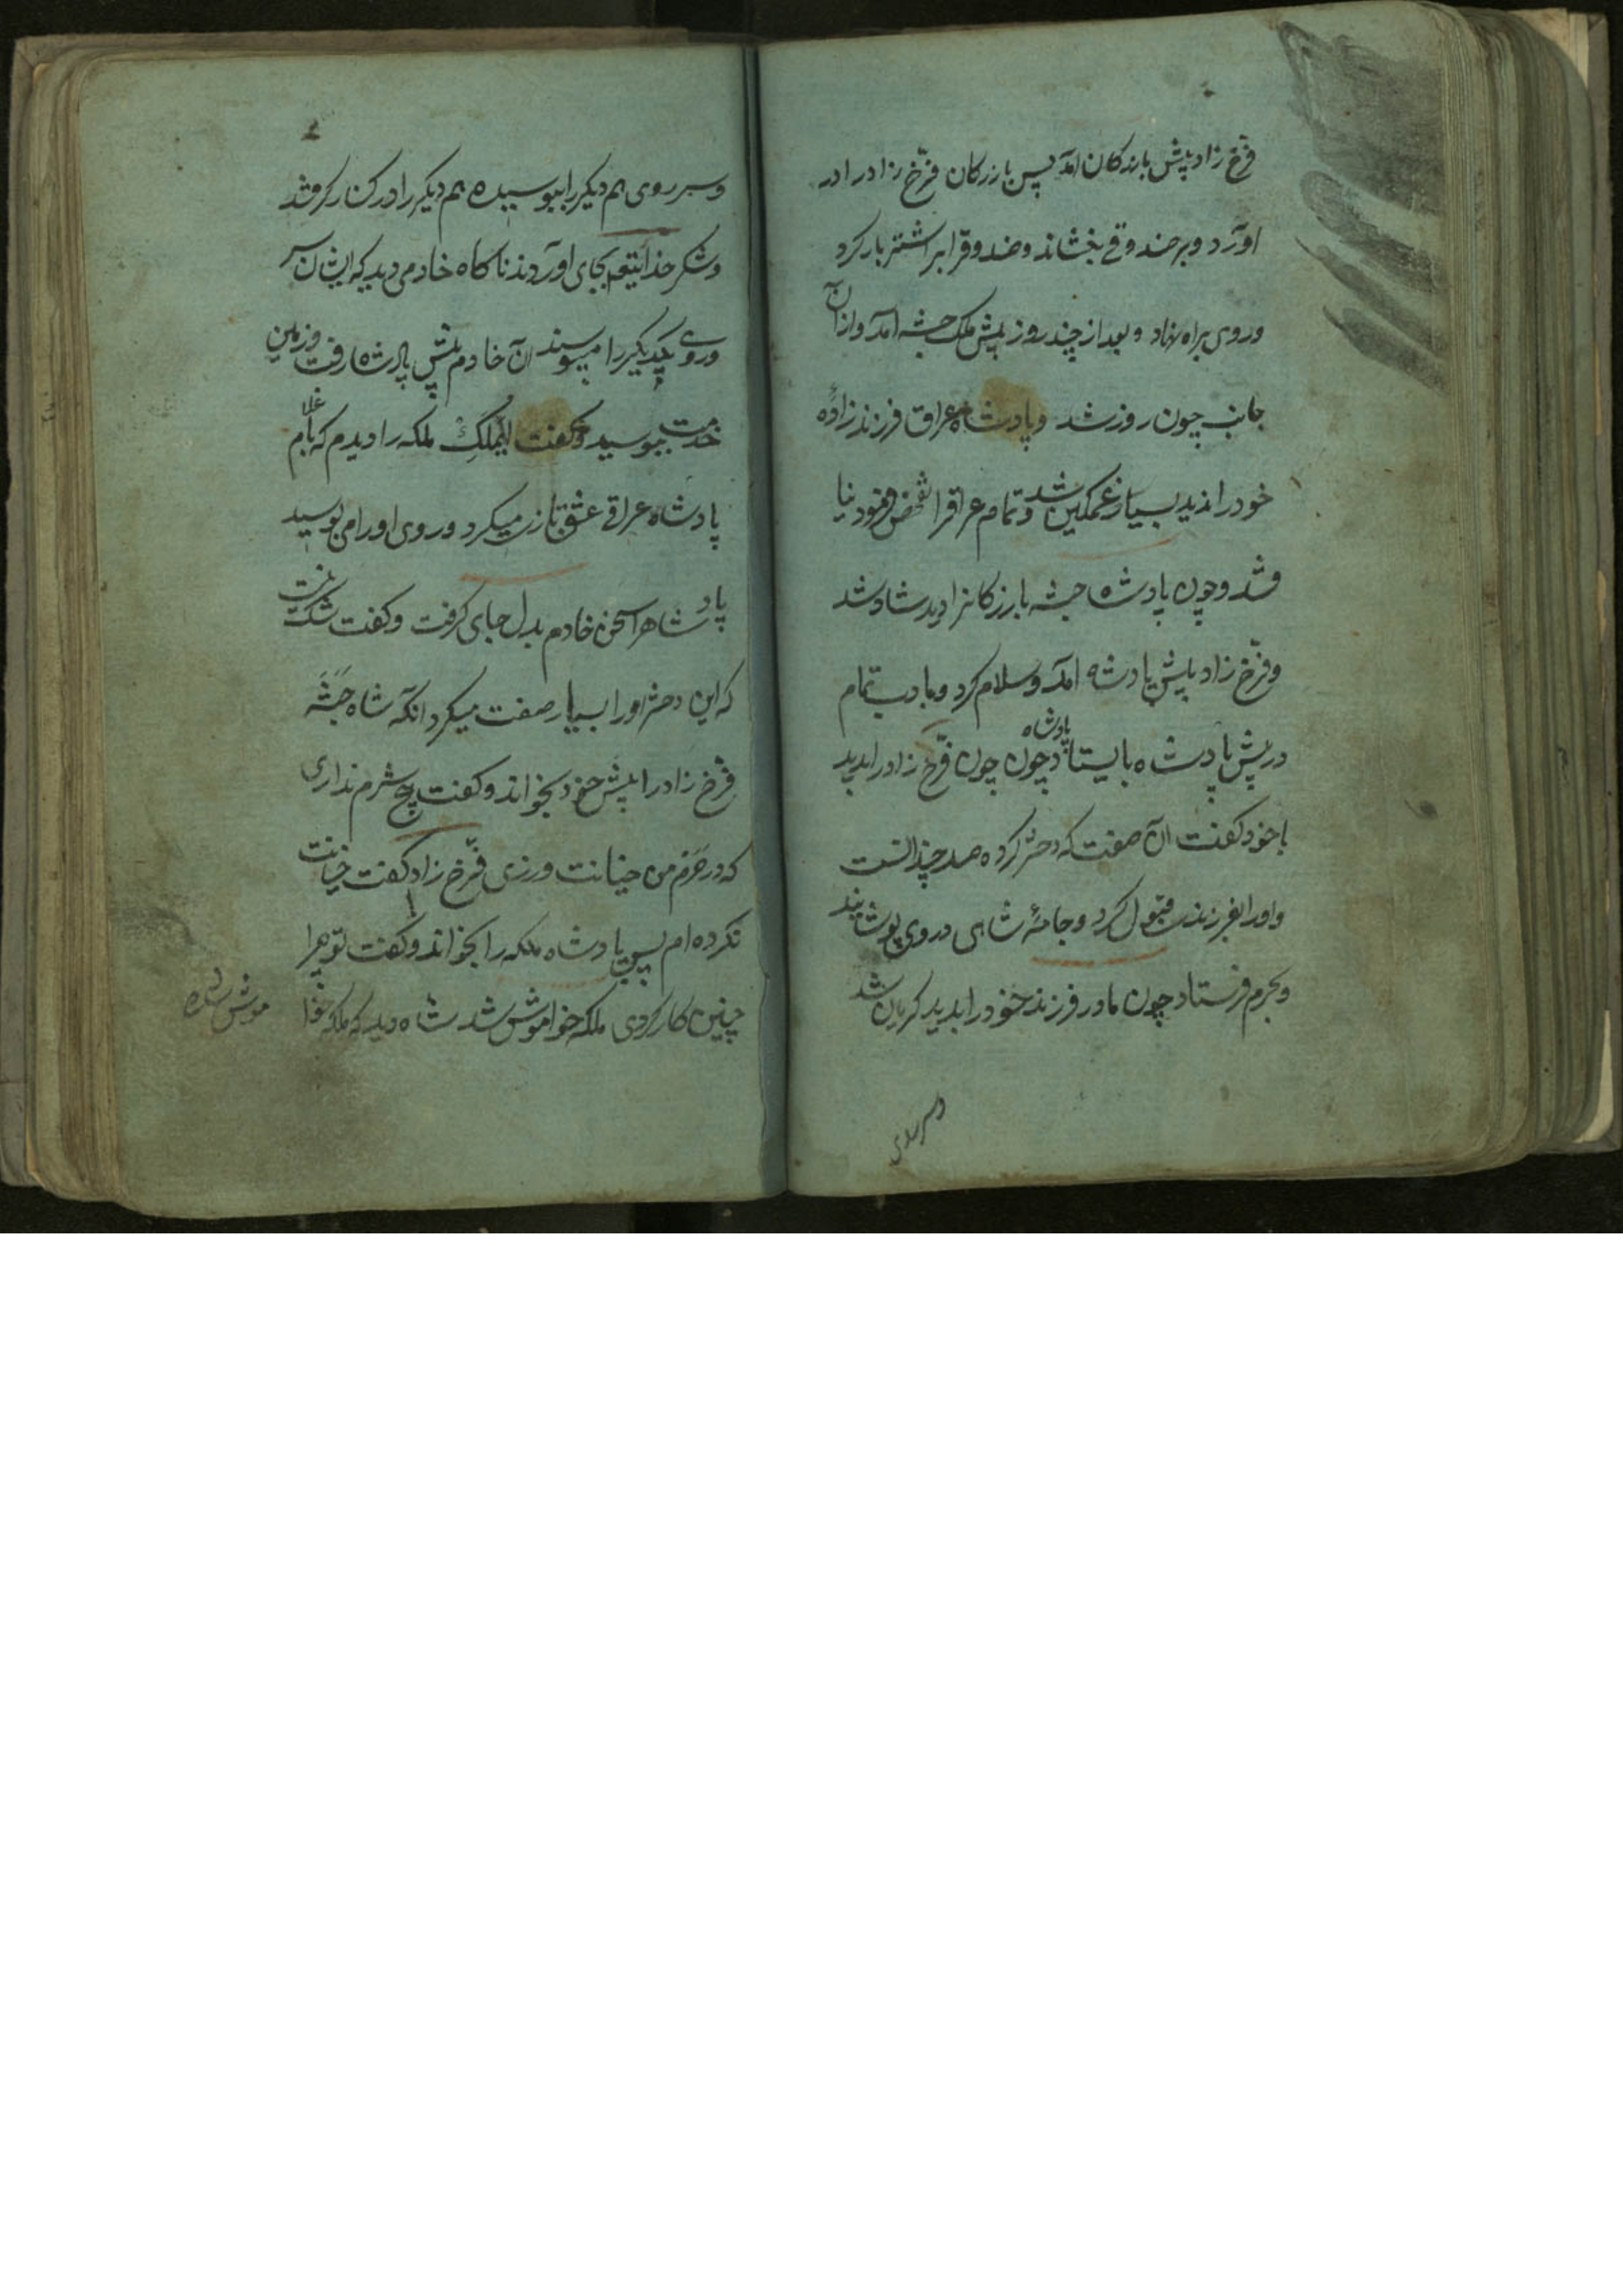 فرّخ زاد پیش بازرکان آمد پس بازرکان فرّخ زاد را در
آورد و بر صندوقی بنشاند و صندوقرا بر اشتر بار کرد
و روی براه نهاد و بعد از چند روز پیش ملک حبشه آمد و ازآن
جانب چون روز شد و پادشاه عراق فرزند زادهٔ
خود را ندید بسیار غمکین شد و تمام عراقرا تفحّص فرمود نیا
فتند و چون پادشاه حبشه بازرکانرا دید شاد شد
و فرّخ زاد پیش پادشاه آمد و سلام کرد و بادب تمام
در پیش پادشاه بایستاد پادشاه چون چون فرّخ زاد را بدید
با خود کفت آن صفت که دختر کرده صد چندانست
و او را بفرزندی قبول کرد و جامهٔ شاهی در وی پوشانید
و بحرم فرستاد چون مادر فرزند خود را بدید کریان شد
و سر روی
و سر روی هم دیکر را ببوسیده هم دیکر را در کنار کرفتند
و شکر خدایتعه بجای آوردند ناکاه خادمی دید که ایشان سر
و روی یکدیکر را میبوسند آن خادم پیش پادشاه رفت و زمین
خدمت ببوسید و کفت ای ملک ملکه را دیدم که با غلام
پادشاه عراقی عشق بازی میکرد و روی او را می بوسید
پادشاهرا سخن خادم بدل جای کرفت و کفت شک نیست
که این دختر او را بسیار صفت میکرد آنکه شاه حبشه
فرّخ زاد را پیش خود بخواند و کفت هیچ شرم نداری
که در حرم من خیانت ورزی فرّخ زاد کفت خیانت
نکرده ام پس پادشاه ملکه را بخواند و کفت تو چرا
چنین کار کردی ملکه خواموش شد شاه دید که ملکه خوا
موش شده